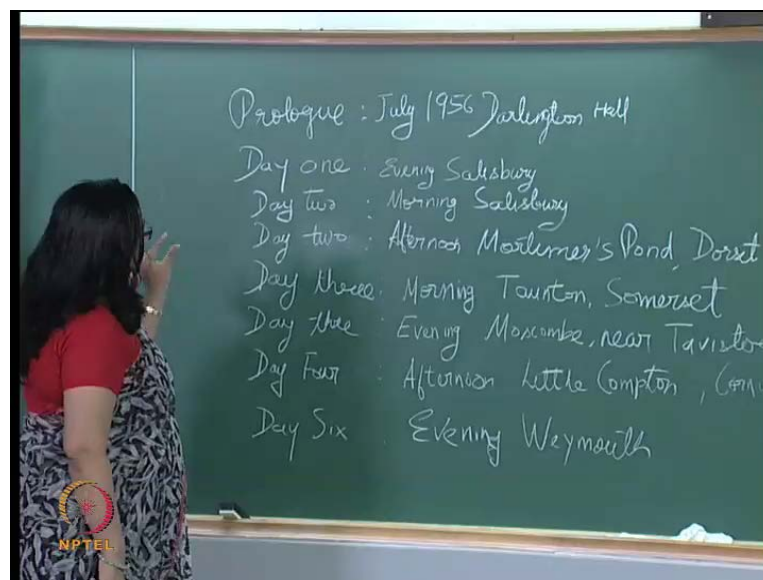 Prologue : July 1956 Darlington Hall
Day one : Evening Salisbury
Day two : Morning Salisbury
Day two : Afternoon Mortimer's Pond, Dorset
Day three : Morning Taunton, Somerset
Day three : Evening Moscombe, near Tavisto
Day Four : Afternoon Little Compton, Corn
Day Six : Evening Weymouth
NPTEL